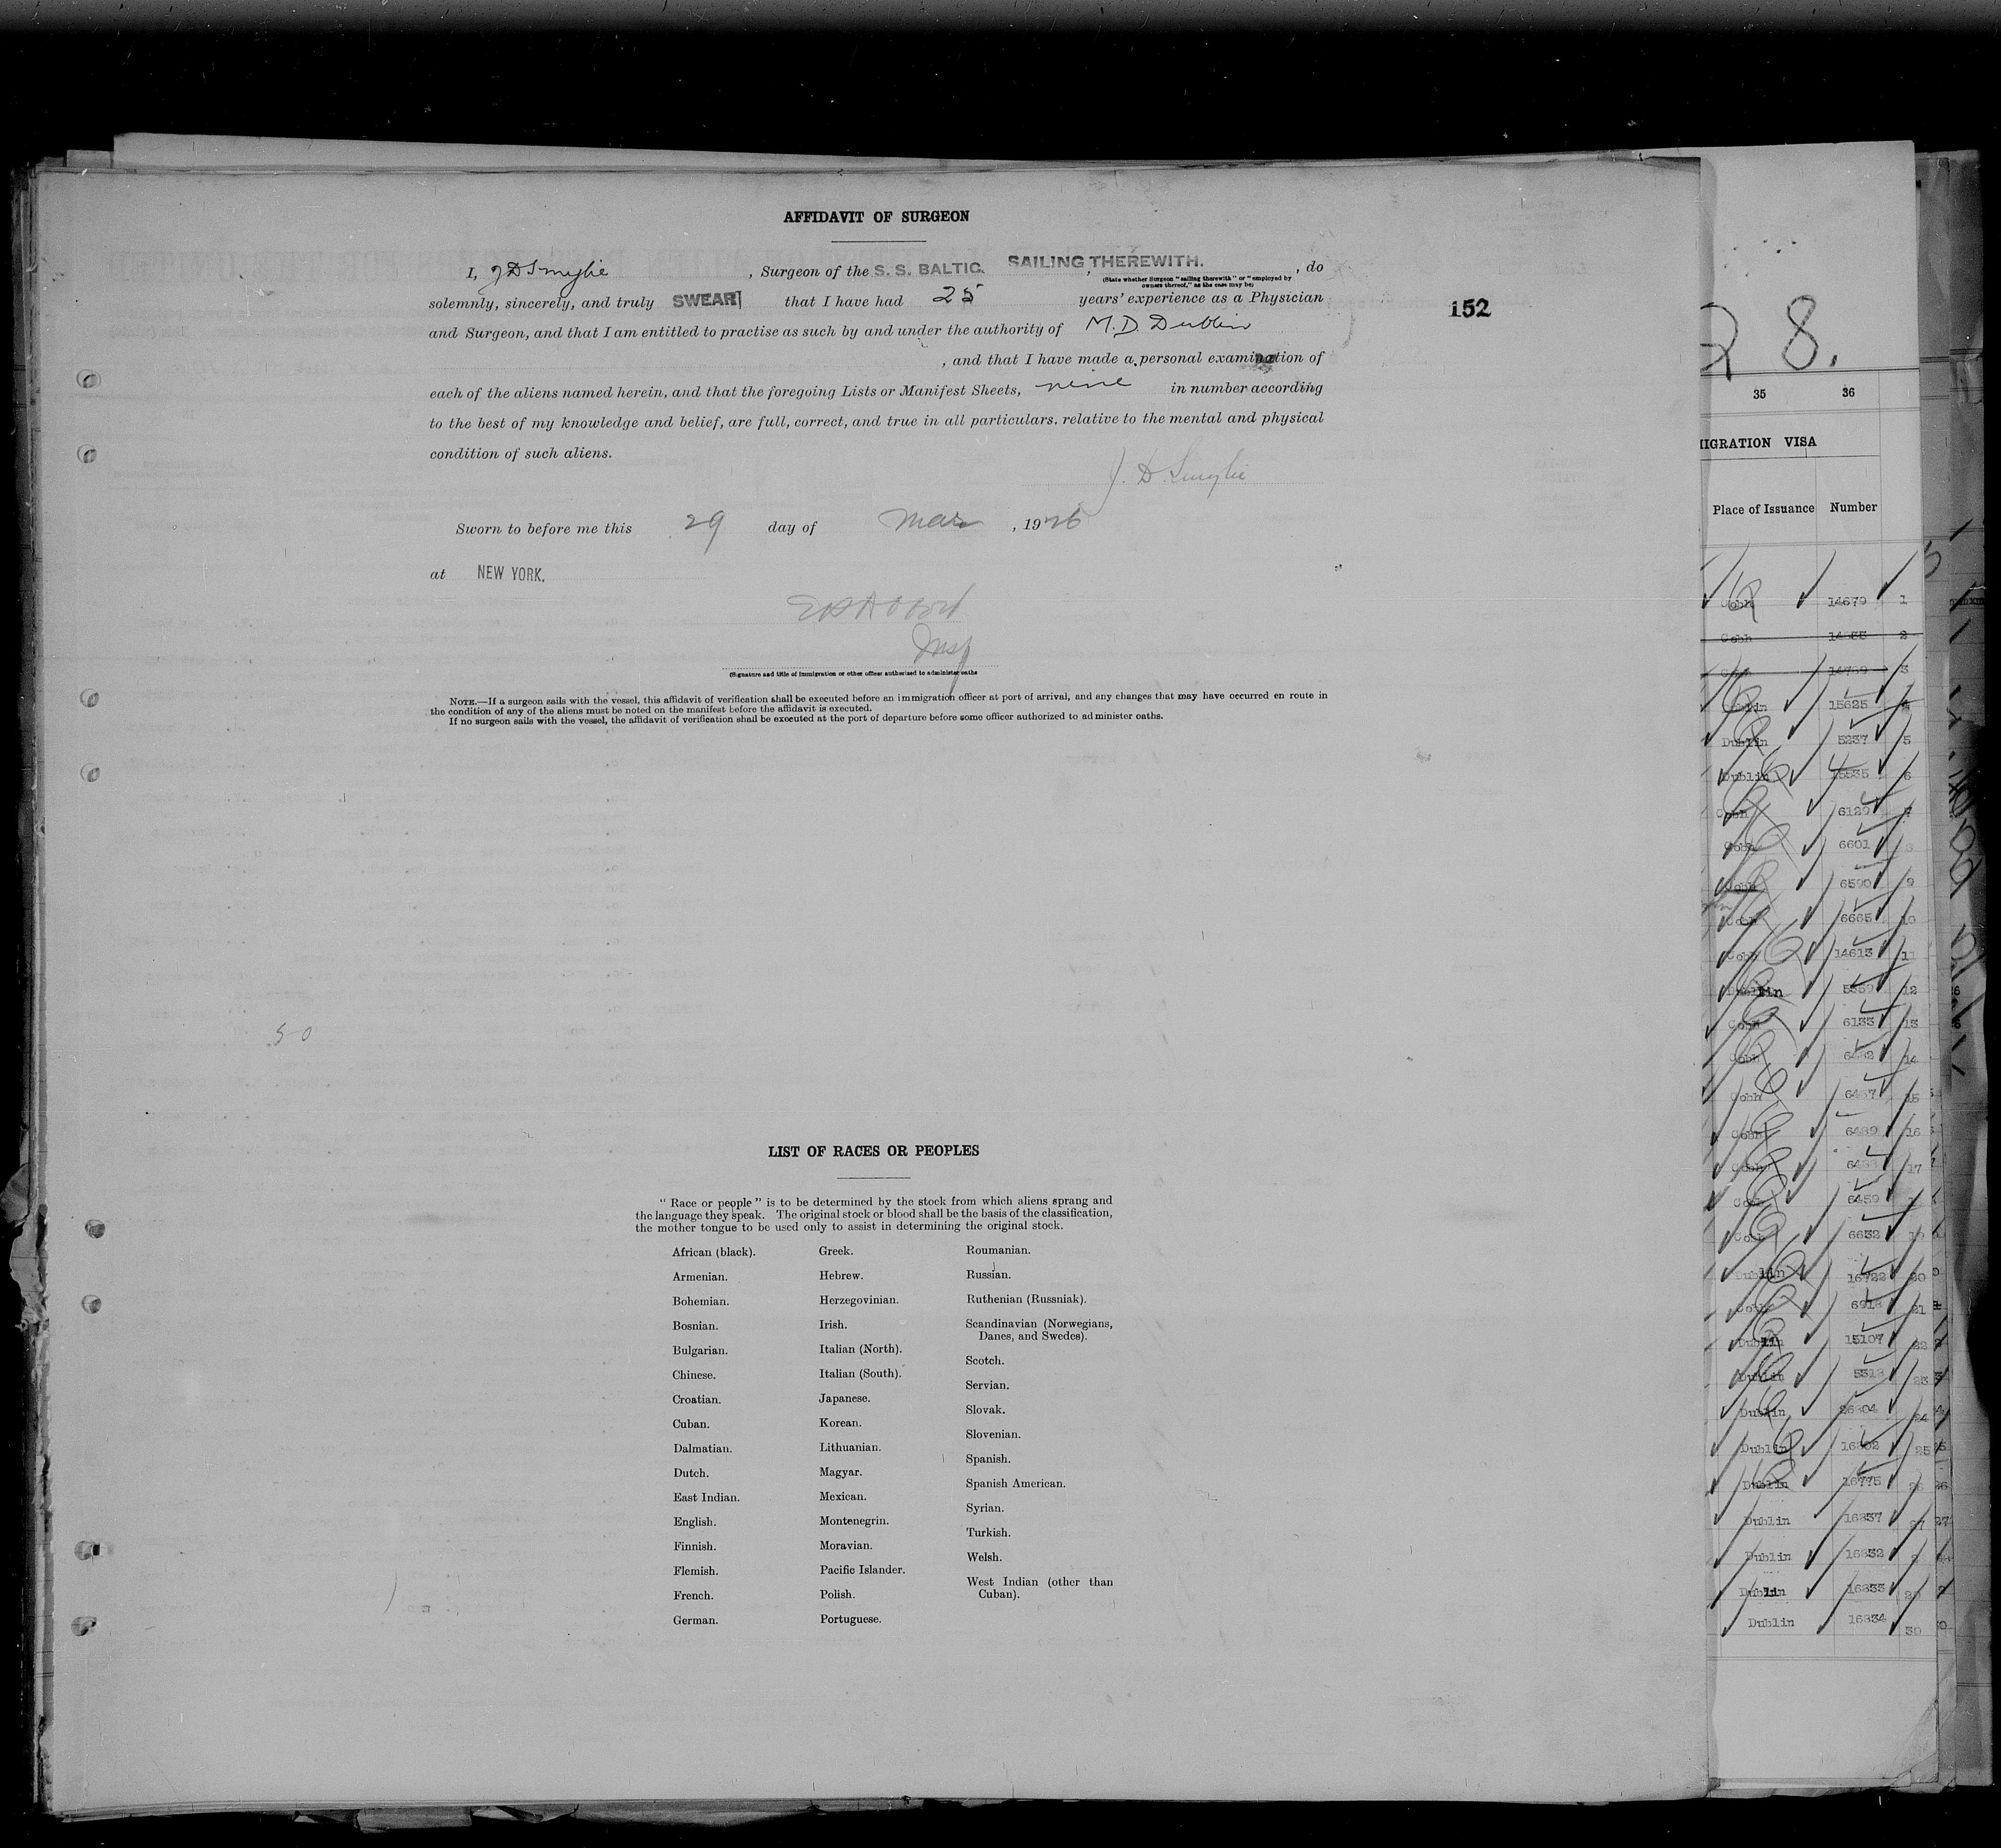 AFFIDAVIT OF SURGEON
I, J D Smylie, Surgeon of the S. S. BALTIC. SAILING THEREWITH., do
(State whether Surgeon "sailing therewith" or "employed by
owners thereof," as the case may be)
solemnly, sincerely, and truly SWEAR that I have had 25 years' experience as a Physician
152
and Surgeon, and that I am entitled to practise as such by and under the authority of M.D. Dublin
, and that I have made a personal examination of
each of the aliens named herein, and that the foregoing Lists or Manifest Sheets, nine in number according
to the best of my knowledge and belief, are full, correct, and true in all particulars. relative to the mental and physical
condition of such aliens.
J. D. Smylie
Sworn to before me this 29 day of Mar, 1926
at NEW YORK.
Insp
(Signature and title of immigration or other officer authorized to administer oaths
NOTE.—If a surgeon sails with the vessel, this affidavit of verification shall be executed before an immigration officer at port of arrival, and any changes that may have occurred en route in
the condition of any of the aliens must be noted on the manifest before the affidavit is executed.
If no surgeon sails with the vessel, the affidavit of verification shall be executed at the port of departure before some officer authorized to administer oaths.
50
LIST OF RACES OR PEOPLES
" Race or people " is to be determined by the stock from which aliens sprang and
the language they speak. The original stock or blood shall be the basis of the classification,
the mother tongue to be used only to assist in determining the original stock.
African (black).
Armenian.
Bohemian.
Bosnian.
Bulgarian.
Chinese.
Croatian.
Cuban.
Dalmatian.
Dutch.
East Indian.
English.
Finnish.
Flemish.
French.
German.
Greek.
Hebrew.
Herzegovinian.
Irish.
Italian (North).
Italian (South).
Japanese.
Korean.
Lithuanian.
Magyar.
Mexican.
Montenegrin.
Moravian.
Pacific Islander.
Polish.
Portuguese.
Roumanian.
Russian.
Ruthenian (Russniak).
Scandinavian (Norwegians,
Danes, and Swedes).
Scotch.
Servian.
Slovak.
Slovenian.
Spanish.
Spanish American.
Syrian.
Turkish.
Welsh.
West Indian (other than
Cuban).
8.
35 36
IGRATION VISA
Place of Issuance Number
Cobh 14679 1
Cobh 2
3
15625 4
Dublin 5237 5
Dublin 6
Cobh 6129 7
Cobh 6601 8
Cobh 6590 9
Cobh 6665 10
Cobh 14613 11
Dublin 5359 12
Cobh 6133 13
Cobh 14
Cobh 15
Cobh 6489 16
Cobh 17
Cobh 6459
Cobh 6632 19
Dublin 16722 20
Cobh 21
Dublin 15107 22
Dublin 23
Dublin 24
Dublin 25
Dublin 16775 26
Dublin 16837 27
Dublin 16832
Dublin 16833 29
Dublin 16834 30